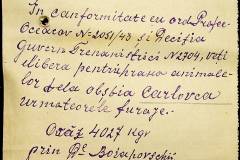 In conformitate cu ord. Prefec.
Oceacov No-2051/43 si Recifia
Guvern Transnistriei N2704, veti
elibera pentru hrana animale-
lor dela obstia Carlovca
urmatorele furaje.
Orăz 4027 Kgr
prin